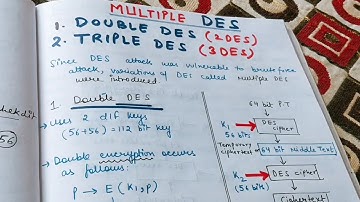 MULTIPLE DES
1. DOUBLE DES (2DES)
2. TRIPLE DES (3DES)
Since DES attack was vulnerable to bruteforce
attack, variations of DES called multiple DES
were introduced.
1 Double DES
→ uses 2 dif keys
(56+56) = 112 bit key
→ Double encryption occurs
as follows:
P → E (K1,P)
64 bit P.T
K1
(56 bits)
DES
cipher
Temporary
ciphertext
64 bit Middle Text
K2
(56 bits)
DES
cipher
Ciphertext
56